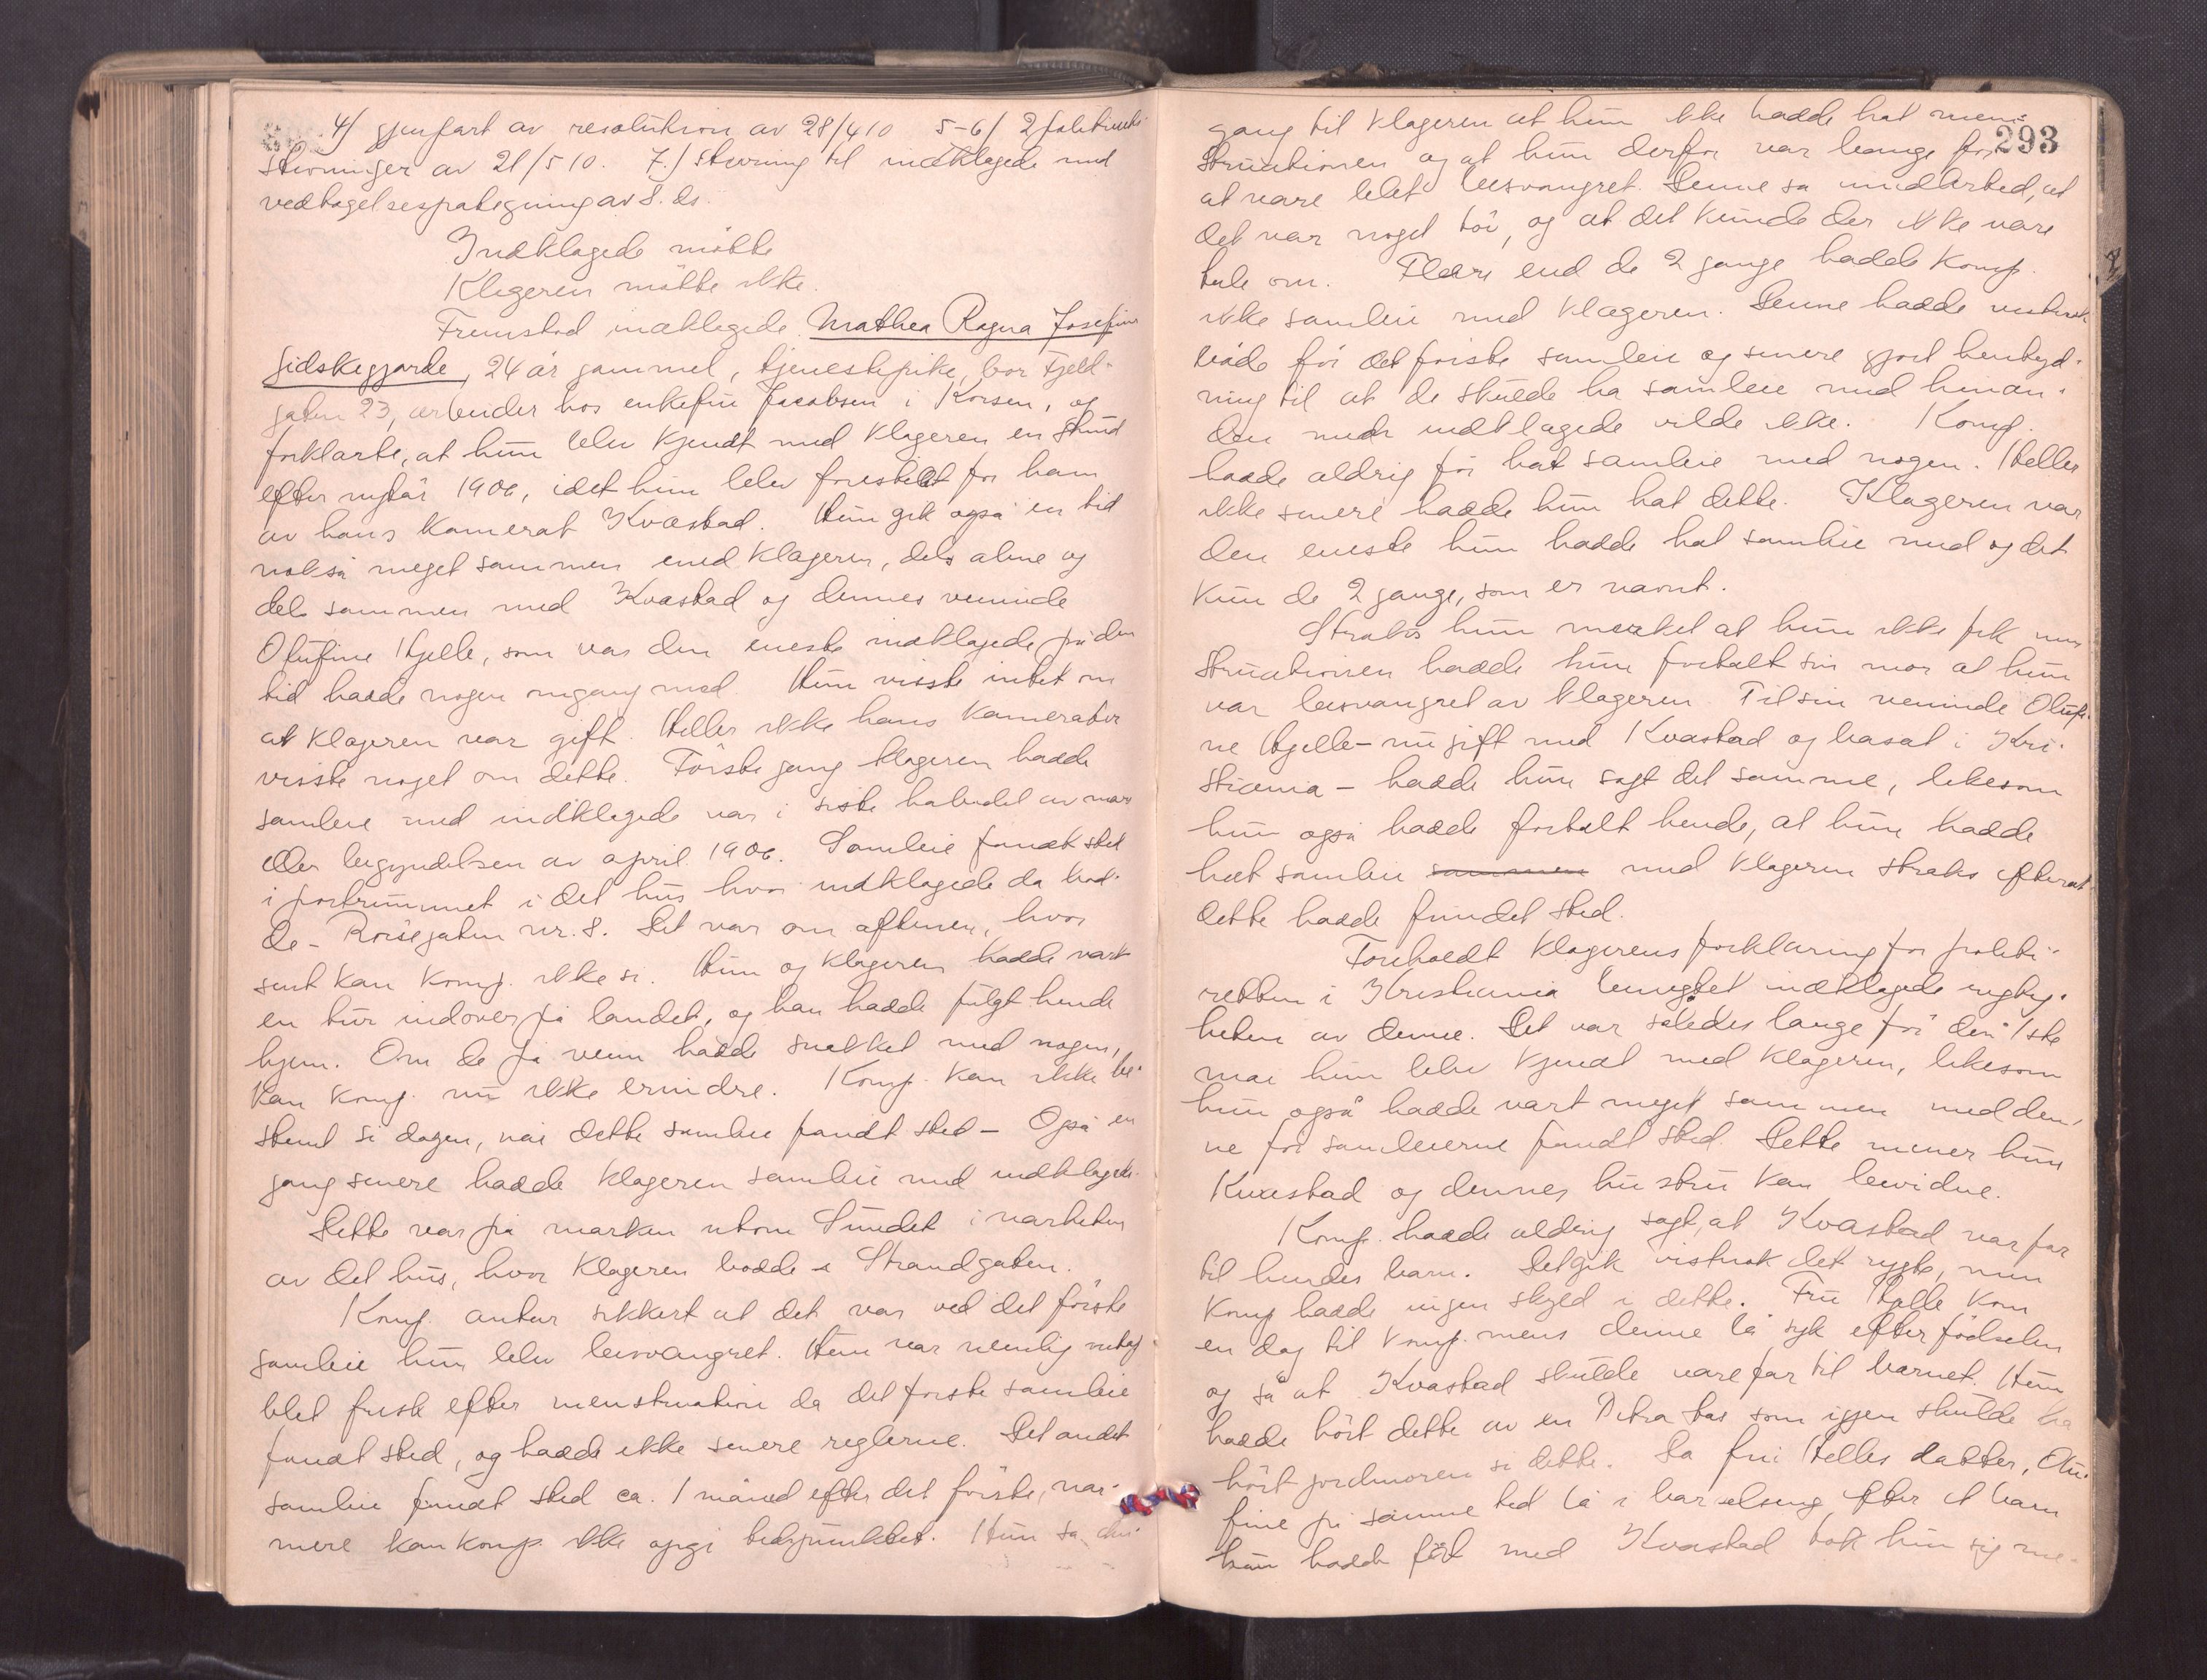 4/ gjenpart av resolution av 28/4 10 5-6/ 2 politirets-
stevninger av 21/5 10. 7./ Stevning til indklagede med
vedtagelsespategning av 8. ds.
Indklagede møtte
Klageren møtte ikke.
Fremstod indklagede Mathea Ragna Josefine
Gidskegjerde, 24 år gammel, tjenestepike, bor Fjeld-
gaten 23, arbeider hos enkefru Jacobsen i Korsen, og
forklarte, at hun blev kjendt med klageren en stund
efter nytår 1906, idet hun blev forestillet for ham
av hans kamerat Kvastad. Hun gik også en tid
nokså meget sammen med klageren, dels alene og
dels sammen med Kvastad og dennes veninde
Olufine Hjelle, som var den eneste indklagede på den
tid hadde nogen omgang med. Hun visste intet om
at klageren var gift. Heller ikke hans kamerater
visste noget om dette. Første gang klageren hadde
samleie med indklagede var i siste halvdel av mars
eller begyndelsen av april 1906. Samleie fandt sted
i portrummet i det hus hvor indklagede da bod-
de - Røisegaten nr. 8. Det var om aftenen, hvor
sent kan komp. ikke si. Hun og klageren hadde vært
en tur indover på landet, og han hadde fulgt hende
hjem. Om de på veien hadde snakket med nogen,
kan komp. nu ikke erindre. Komp. kan ikke be-
stemt si dagen, når dette samleie fandt sted - Også en
gang senere hadde klageren samleie med indklagede.
Dette var på marken utom Sundet i nærheten
av det hus, hvor klageren bodde i Strandgaten.
Komp. antar sikkert at det var ved det første
samleie hun blev besvangret. Hun var nemlig netop
blet frisk efter menstruation da det første samleie
fandt sted, og hadde ikke senere reglerne. Det andet
samleie fandt sted ca. 1 måned efter det første, nær-
mere kan komp. ikke opgi tidspunktet. Hun sa den
293
gang til klageren at hun ikke hadde hat men-
struationen og at hun derfor var bange for
at være blet besvangret. Denne sa imidlertid, at
det var noget tøi, og at det kunde der ikke være
tale om. Flere end de 2 gange hadde komp.
ikke samleie med klageren. Denne hadde vistnok
både før det første samleie og senere gjort hentyd-
ning til at de skulde ha samleie med hinan-
den men indklagede vilde ikke. Komp.
hadde aldrig før hat samleie med nogen. Heller
ikke senere hadde hun hat dette. Klageren var
den eneste hun hadde hat samleie med og det
kun de 2 gange, som er nævnt.
Straks hun merket at hun ikke fik men
struationen hadde hun fortalt sin mor at hun
var besvangret av klageren. Til sin veninde Olufi-
ne Hjelle - nu gift med Kvastad og bosat i Kri-
stiania - hadde hun sagt det samme, likesom
hun også hadde fortalt hende, at hun hadde
hat samleie sammen med klageren straks efterat
dette hadde fundet sted.
Foreholdt klagerens forklaring for politi-
retten i Kristiania benegtet indklagede rigtig-
heten av denne. Det var således lange før den 1ste
mai hun blev kjendt med klageren, likesom
hun også hadde vært meget sammen med den-
ne før samleierne fandt sted. Dette mener hun
Kvastad og dennes hustru kan bevidne.
Komp. hadde aldrig sagt, at Kvastad var far
til hendes barn. Det gik vistnok det rygte, men
komp hadde ingen skyld i dette. Fru Hjelle kom
en dag til komp. mens denne lå syk efter fødselen
og så at Kvastad skulde være far til barnet. Hun
hadde hørt dette av en Petra som igjen skulde ha
hørt jordmoren si dette. Da fru Helles datter, Olu-
fine på samme tid lå i barselseng efter et barn
hun hadde fåt med Kvastad tok hun sig me-